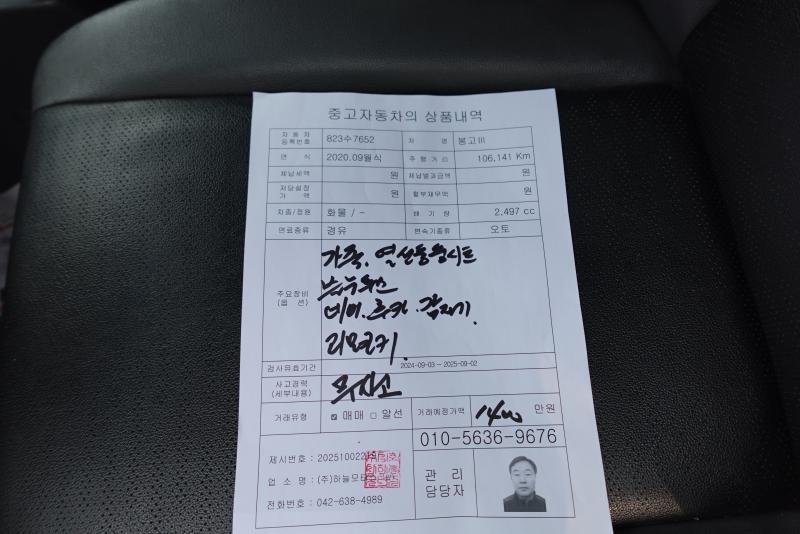 중고자동차의 상품내역
자동차 등록번호 823수7652 차 명 봉고III
연 식 2020.09월식 주행거리 106,141 Km
체납세액 원 체납벌과금액 원
저당설정 가 액 원 할부채무액 원
차종/정원 화물 / - 배 기 량 2,497 cc
연료종류 경유 변속기종류 오토
주요장비 (옵 션)
가죽. 열선통풍시트
블루투스
네비.후카.감지기.
리모컨키.
검사유효기간 2024-09-03 ~ 2025-09-02
사고경력 (세부내용) 무사고
거래유형 매매 알선 거래예정가액 만원
010-5636-9676
제시번호 :
업 소 명 : (주)하늘모터
전화번호 : 042-638-4989
관 리 담당자